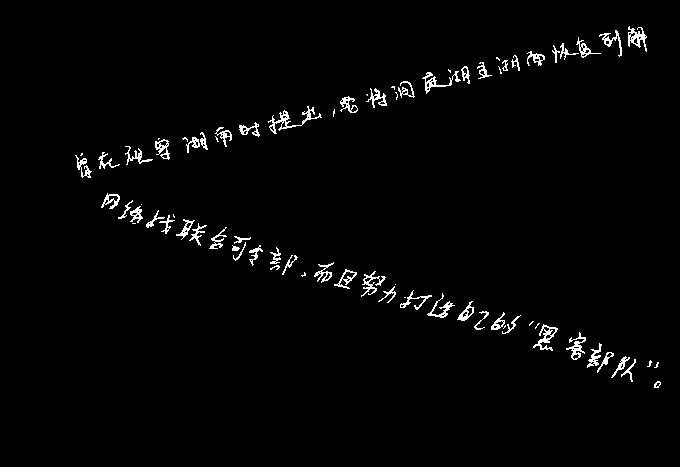 曾在视察湖南时提出，要将洞庭湖主湖面恢复到解
网络战联合司令部，而且努力打造自己的“黑客部队”。